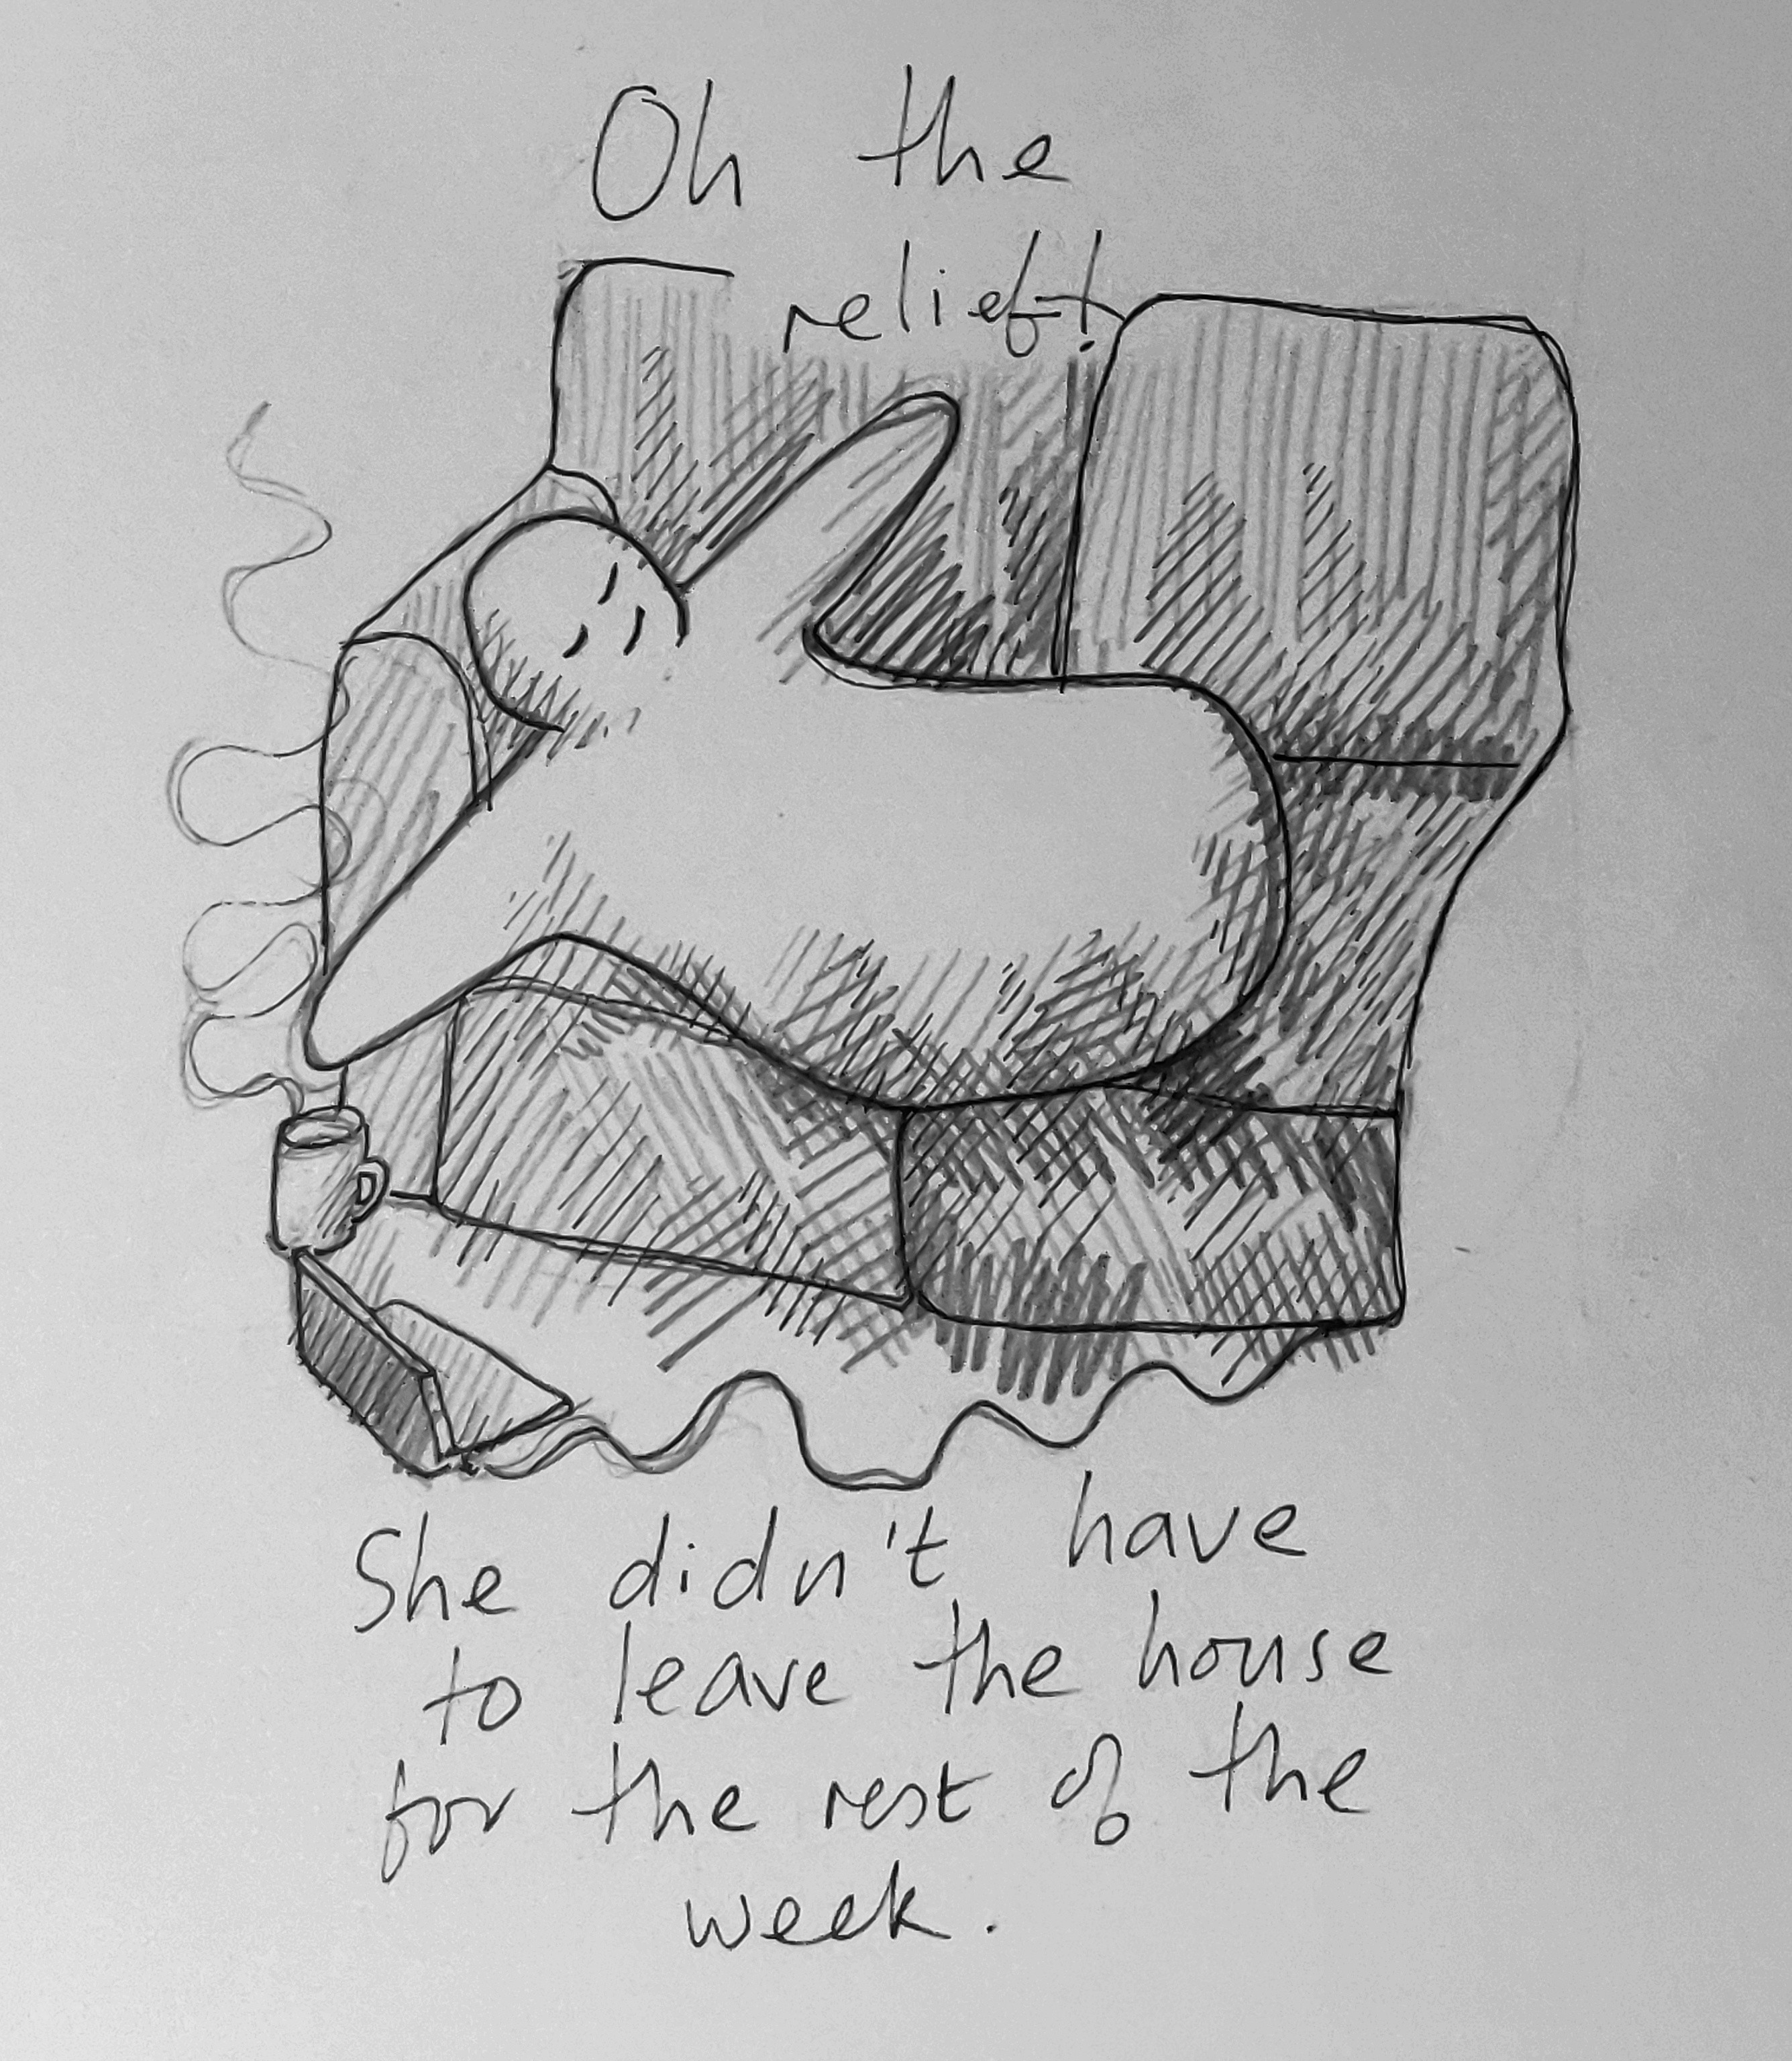 Oh the
relief!
She didn't have
to leave the house
for the rest of the
week.